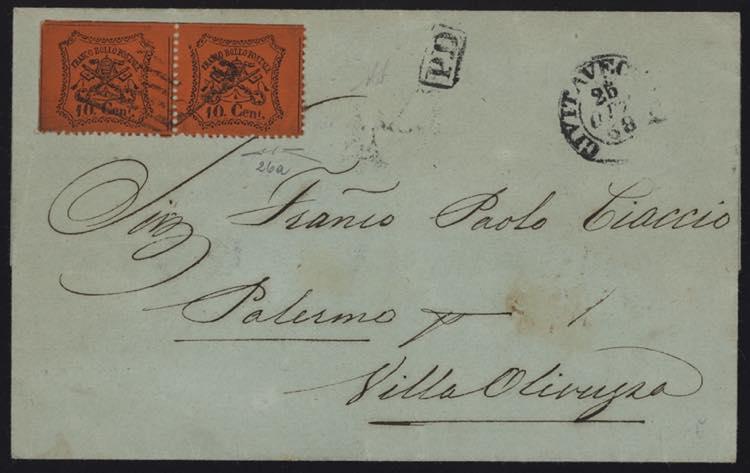 FRANCO BOLLO POSTALE
10 Cent.
FRANCO BOLLO POSTALE
10 Cent.
P.D
CIVITAVEC
25
68
26a
Sig Franco Paolo Ciaccio
Palermo p
Villa Olivuzza